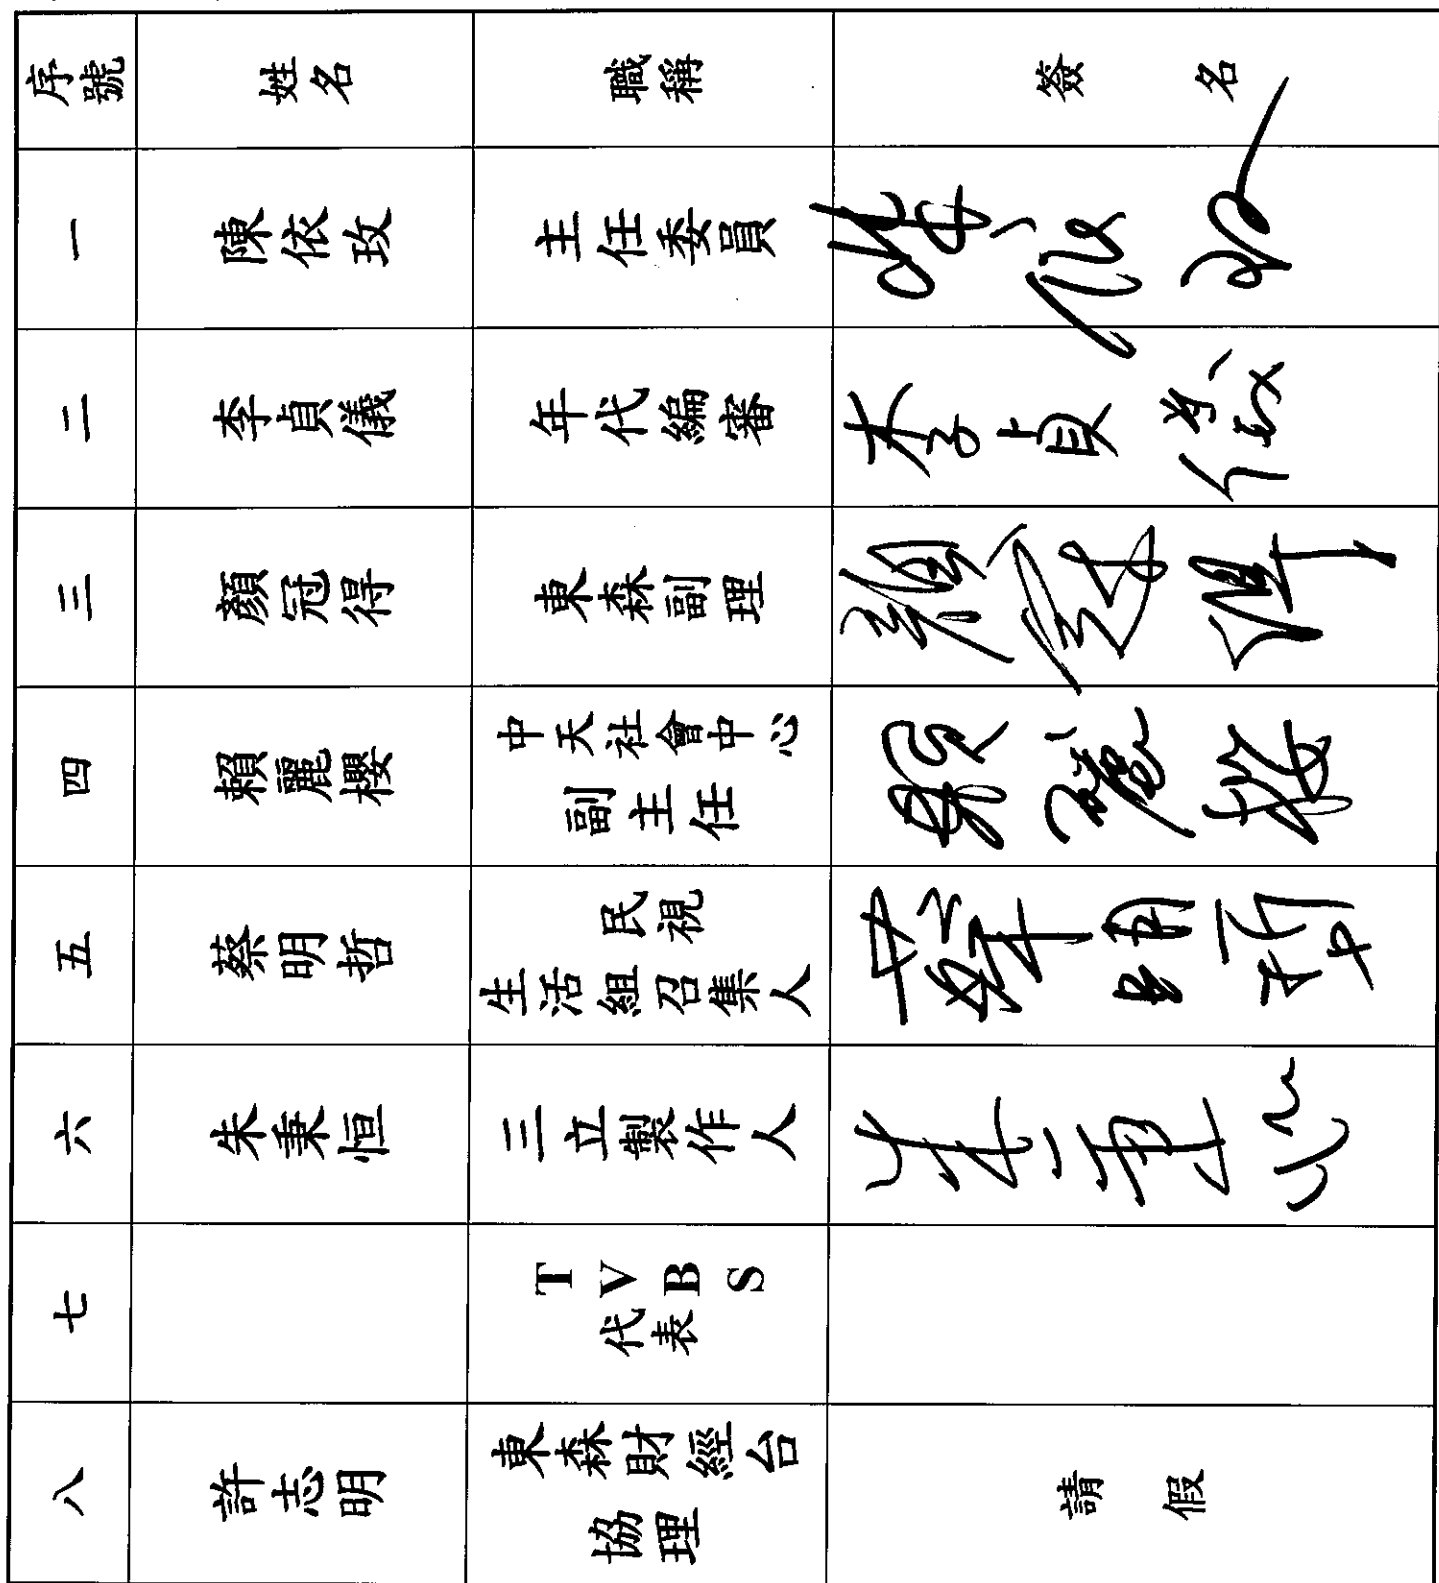 序號 姓名 職稱 簽名
一 陳依玫 主任委員 陳依玫
二 李貞儀 年代編審 李貞儀
三 顏冠得 東森副理 顏冠得
四 賴麗櫻 中天社會中心
副主任 賴麗櫻
五 蔡明哲 民視
生活組召集人 蔡明哲
六 朱秉恒 三立製作人 朱秉恒
七 TVBS
代表
八 許志明 東森財經台
協理 請假